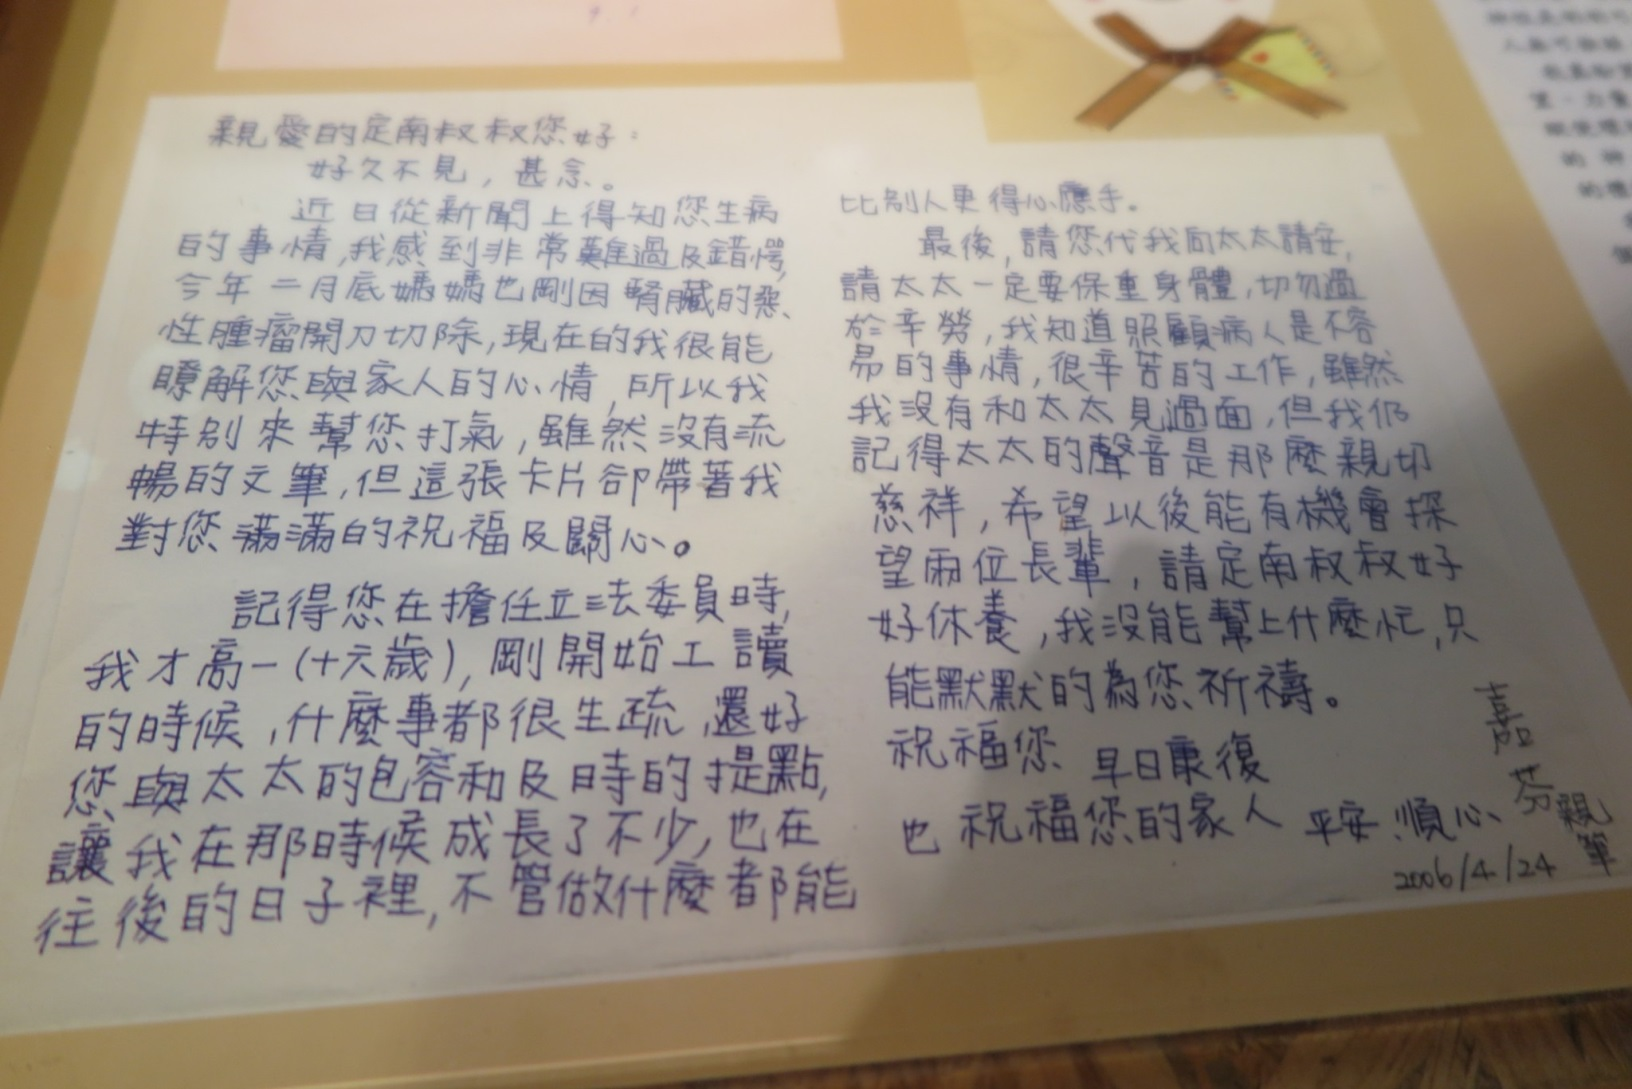 親愛的定南叔叔您好：
好久不見，甚念。
近日從新聞上得知您生病
的事情，我感到非常難過及錯愕，
今年二月底媽媽也剛因腎臟的惡
性腫瘤開刀切除，現在的我很能
瞭解您與家人的心情，所以我
特別來幫您打氣，雖然沒有流
暢的文筆，但這張卡片卻帶著我
對您滿滿的祝福及關心。
記得您在擔任立法委員時，
我才高一(十六歲)，剛開始工讀
的時候，什麼事都很生疏，還好
您與太太的包容和及時的提點，
讓我在那時候成長了不少，也在
往後的日子裡，不管做什麼都能
比別人更得心應手。
最後，請您代我向太太請安，
請太太一定要保重身體，切勿過
於辛勞，我知道照顧病人是不容
易的事情，很辛苦的工作，雖然
我沒有和太太見過面，但我仍
記得太太的聲音是那麼親切
慈祥，希望以後能有機會探
望兩位長輩，請定南叔叔好
好休養，我沒能幫上什麼忙，只
能默默的為您祈禱。
祝福您 早日康復
也祝福您的家人 平安、順心
嘉芬親筆
2006/4/24